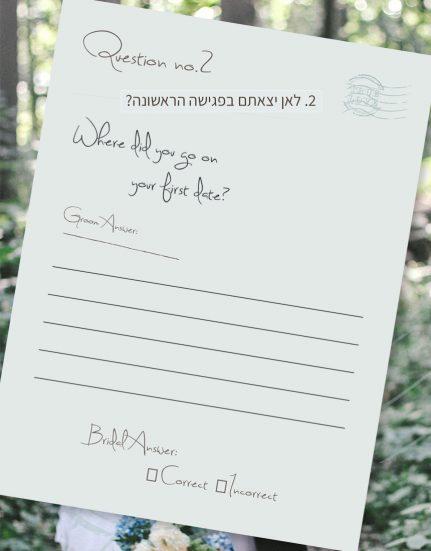 Question no.2
2. לאן יצאתם בפגישה הראשונה?
Where did you go on
your first date?
Groom Answer:
Bridal Answer:
☐ Correct ☐ Incorrect